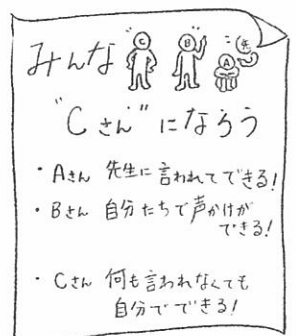 みんな C B A 先
"Cさん"になろう
・Aさん 先生に言われてできる!
・Bさん 自分たちで声かけが
できる!
・Cさん 何も言われなくても
自分でできる!